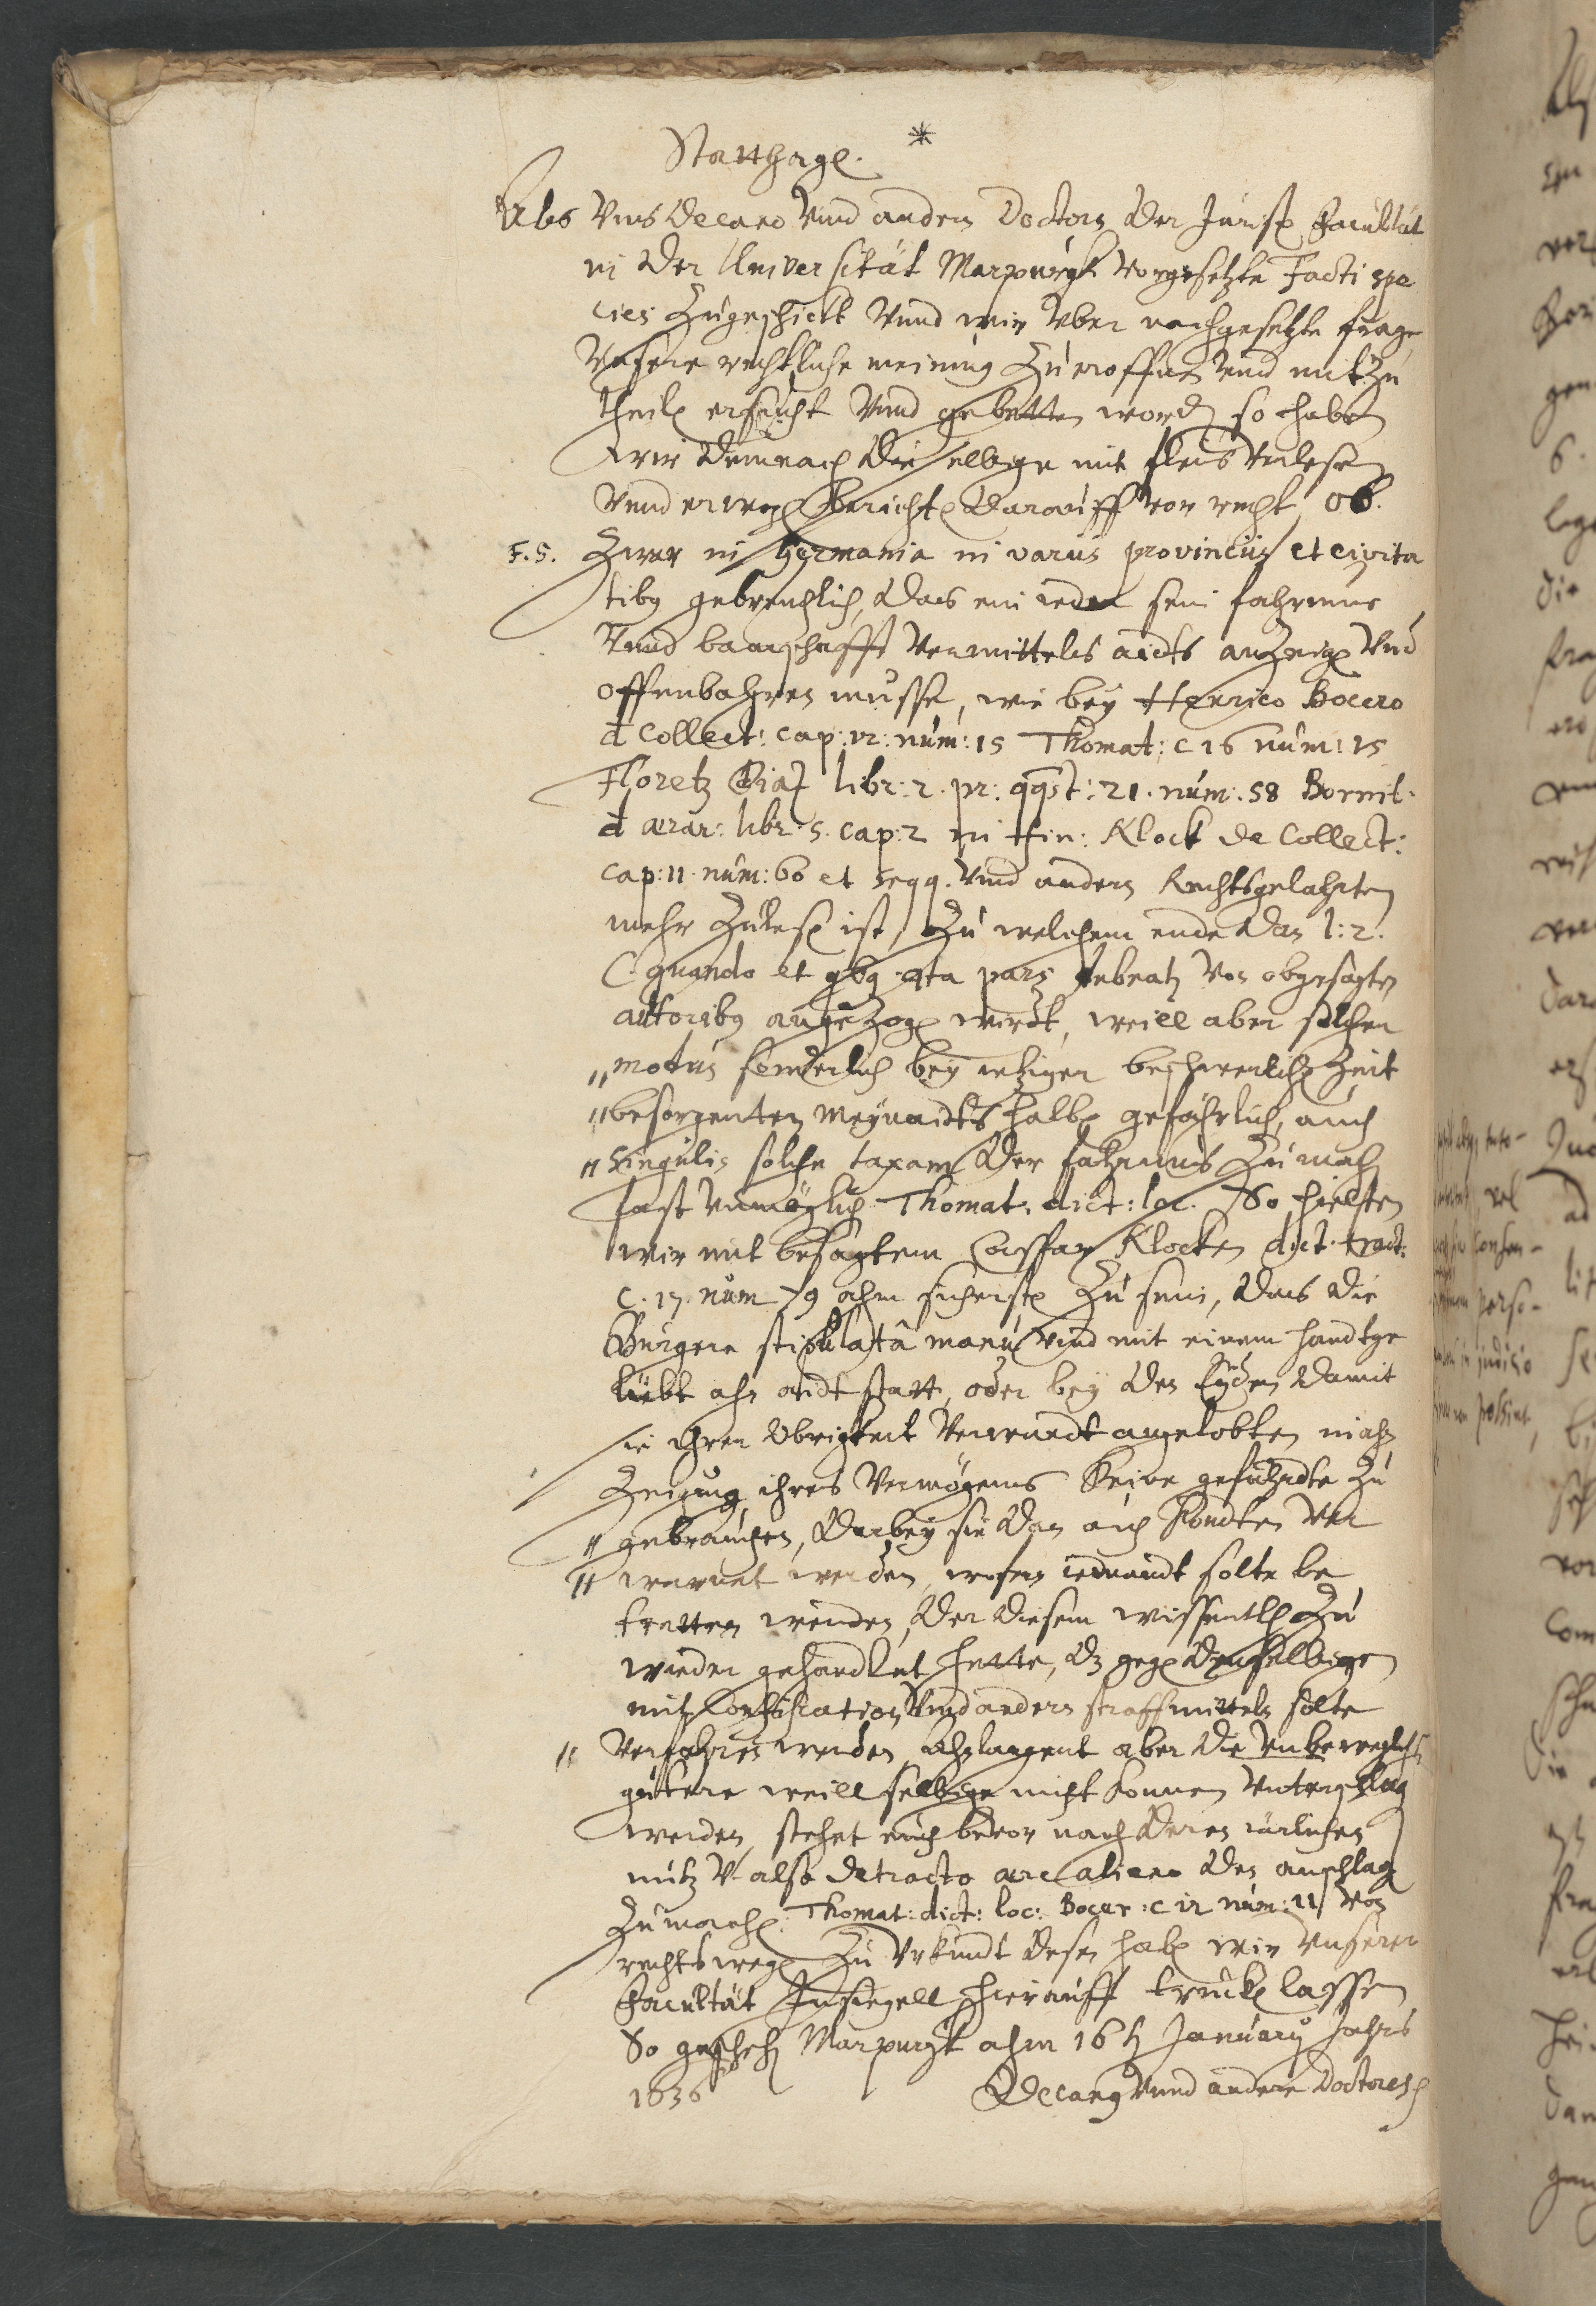 Statthage.
Als Vns Decano Vnd andern Doctorn der Jurist Facultät
in der Universität Marpurgk vorgesetzte Facti spe
cies zugeschickt Vnnd wir Vber nachgesetzte frage
Vnsere rechtliche meinung zu eroffnen Vnd mitzu
theilen ersucht Vnnd gebetten worden so haben
wir demnach dieselbige mit fleis verlesen
Vnnd erwogen Berichten darauff vor recht, ob.
F. 5. Zwar in Germania in varijs provincijs et civita
tibus gebreuchlich, das ein ieder sein fahrnus
Vnnd baarschafft Vermittels aidts anzeigen Vnd
offenbahren musse, wie bey Henrico Bocero
d Collect: cap: 12: num: 15 Thomat: c 16 num: 15
Floretz Diaz libr: 2. pr: qqst: 21. num: 58 Bornit.
d ærar: libr: 5. cap: 2 in fin: Klock de Collect:
cap: 11. num: 60 et seqq. Vnd andern Rechtsgelahrten
mehr zulesen ist, zu welchem ende dan l: 2.
C. quando et qbg qta pars debeatur von obgesagten
autoribus angezogen wirdt, weill aber solcher
„ modus sonderlich bey ietziger beschwerlichen Zeit
„ besorgenten Meynaidts halben gefährlich, auch
„ singulis solche taxam der fahrnus zumachen
fast Vnmöglich Thomat: dict: loc. So hielten
wir mit besagtem Caspar Klocken dict. tract:
c. 17. num 79 ahm sichersten zu sein, das die
Burgere stipulatâ manu Vnd mit einem handtge
lübt ahn aidt statt, oder bey den Eyden damit
sie ihrer Obrigkeit Verwandt angelobten in ahn
Zeigung ihres Vermögens Keine gefahrdte zu
„ gebrauchen, darbey sie dan auch Kondten Ver
„ warnet werden, wofern iemandt solte be
tretten werden, der diesem wissentlich zu
wieder gehandlet hette, dz gegen denselbigen
mit Confiscation Vnd andern straffmitteln solte
„ Verfahren werden, ahnlangent aber die Vnbeweglichen
gutere weill selbige nicht können Vnterschlagen
werden, stehet euch bevor nach deren iarlichen
nutz V also detracto ære alieno den anschlag
zumachen. Thomat: dict: loc: Bocer: c 12 num: 11 Von
rechtswegen Zu Vrkundt desen haben wir Vnserer
Facultät Insiegell hierauff trucken lassen
So geschehen Marpurgk ahm 16ten January Jahrs
1636
Decanus Vnnd andere Doctores